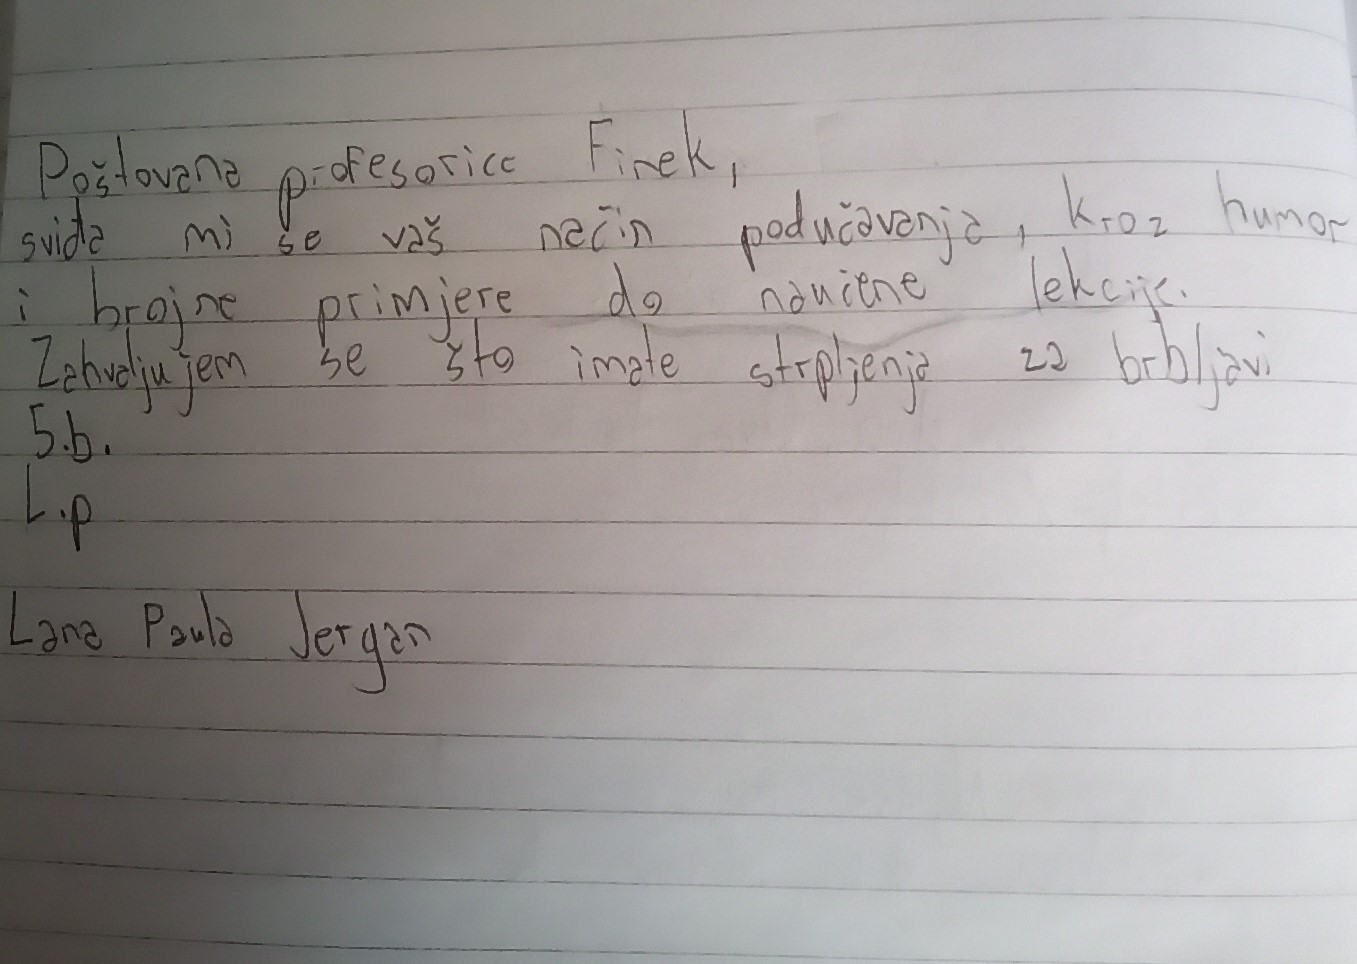 Poštovana profesorice Finek,
sviđa mi se vaš način podučavanja, kroz humor
i brojne primjere do naučene lekcije.
Zahvaljujem se što imate strpljenja za brbljavi
5.b.
L.p
Lana Paula Jergan